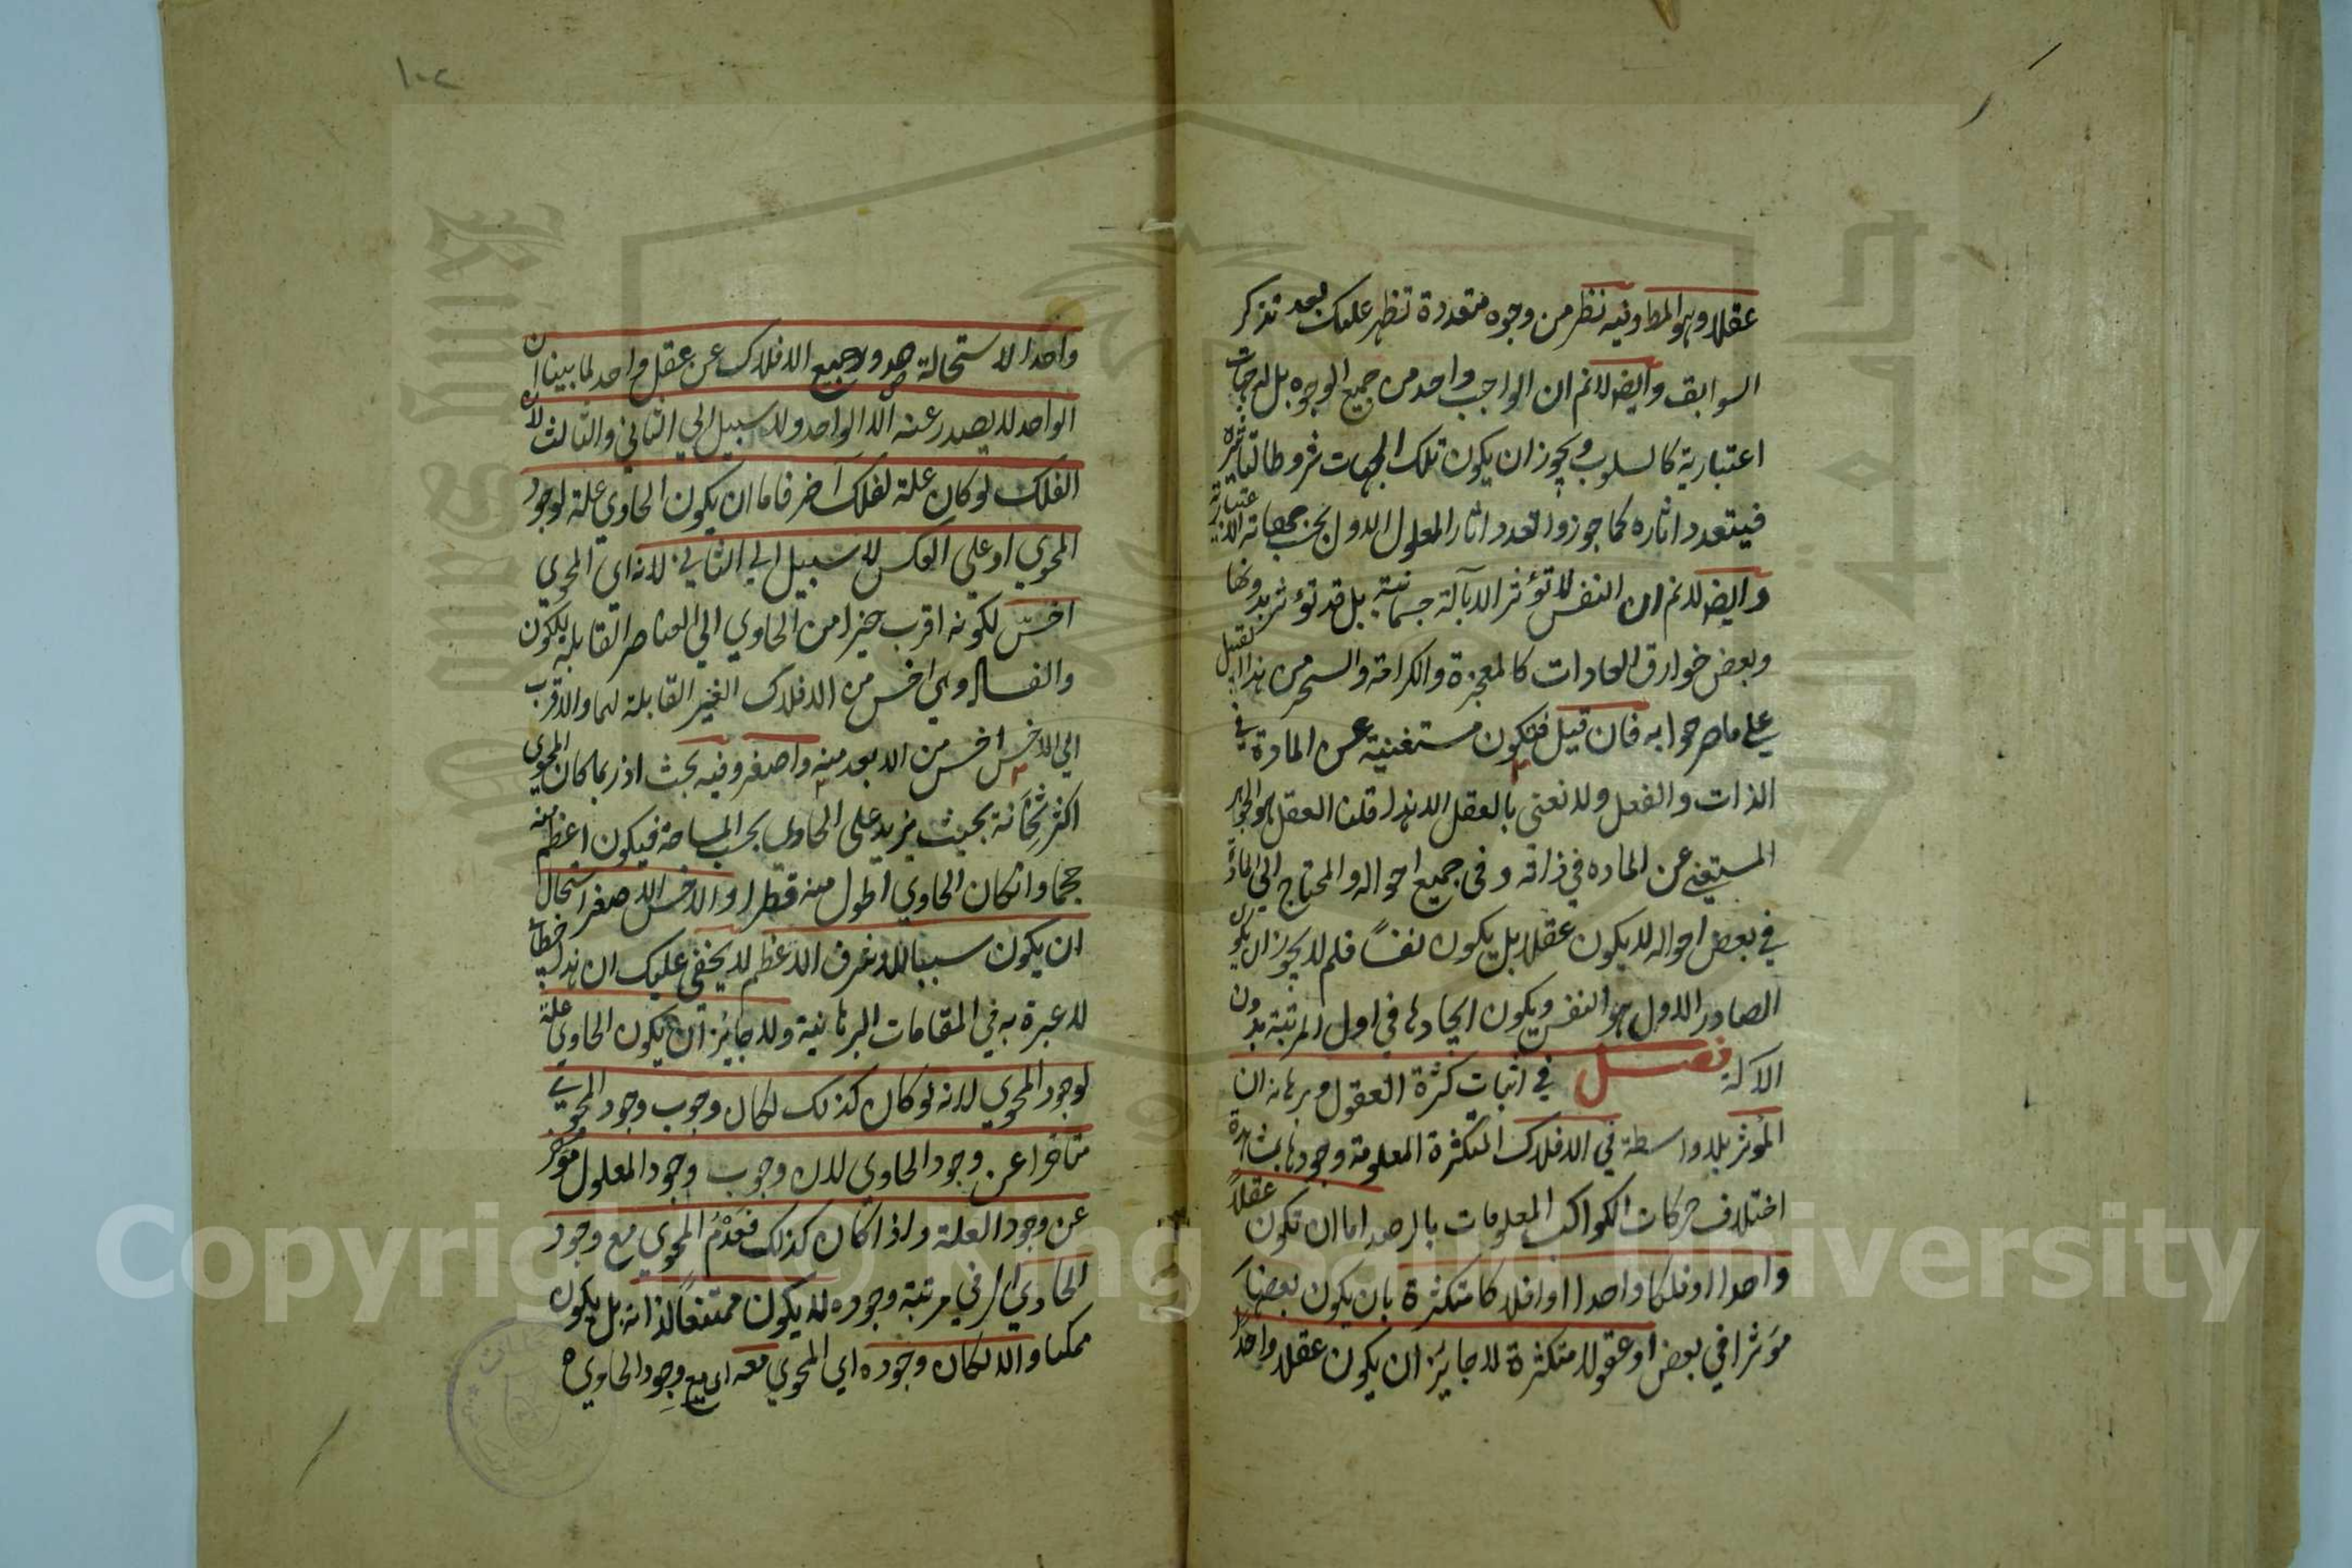 عقلا وهو المط وفيه نظر من وجوه متعددة تظهر عليك بعد تذكر
السوابق وايض لانم ان الواجب واحد من جميع الوجوه بل له جهات
اعتبارية كالسلوب ويجوز ان يكون تلك الجهات شروطا لتاثيره
فيتعدد اثاره كما جوزوا تعدد اثار المعلول الاول بحسب جهاته الاعتبارية
وايض لانم ان النفس لا تؤثر الا بآلة جسمانية بل قد تؤثر بدونها
وبعض خوارق العادات كالمعجزة والكرامة والسحر من هذا القبيل
على ما صرحوا به فان قيل فتكون مستغنية عن المادة في
الذات والفعل ولا نعنى بالعقل الا هذا قلنا العقل هو الجوهر
المستغني عن الماده في ذاته وفى جميع احواله والمحتاج الى المادة
في بعض احواله لا يكون عقلا بل يكون نفسا فلم لا يجوز ان يكون
الصادر الاول هو النفس ويكون ايجادها في اول المرتبة بدون
الآلة فصل في اثبات كثرة العقول وبرهانه ان
المؤثر بلا واسطة في الافلاك المتكثرة المعلومة وجودها بمشاهدة
اختلاف حركات الكواكب المعلومات بالرصد اما ان تكون عقلا
واحدا او فلكا واحدا او افلاكا متكثرة بان يكون بعضها
مؤثرا في بعض او عقولا متكثرة لا جايز ان يكون عقلا واحدا
١٠٢
واحدا لاستحالة صدور جميع الافلاك عن عقل واحد لما بينا ان
الواحد لا يصدر عنه الا الواحد ولا سبيل الي الثاني والثالث لان
الفلك لو كان علة لفلك آخر فاما ان يكون الحاوي علة لوجود
المحوي او على العكس لا سبيل الي الثاني لانه اى المحوي
اخسّ لكونه اقرب حيزا من الحاوي الي العناصر القابلة للكون
والفساد وهي اخس من الافلاك الغير القابلة لهما والاقرب
الي الاخس اخس من الابعد منه واصغر وفيه بحث اذ ربما كان المحوى
اكثر ثخانة بحيث يزيد على الحاوى بحسب المساحة فيكون اعظم منه
حجما وان كان الحاوي اطول منه قطرا والاخس الاصغر استحال
ان يكون سببا للاشرف الاعظم لا يخفى عليك ان هذا خطابي
لا عبرة به في المقامات البرهانية ولا جايز ان يكون الحاوى علة
لوجود المحوي لانه لو كان كذلك لكان وجوب وجود المحوي
متاخرا عن وجود الحاوى لان وجوب وجود المعلول مؤخر
عن وجود العلة واذا كان كذلك فعَدَمُ المحوي مع وجود
الحاوي اي في مرتبة وجوده لا يكون ممتنعاً لذاته بل يكون
ممكنا والا لكان وجوده اي المحوي معه اى مع وجود الحاوي
Copyright © King Saud University